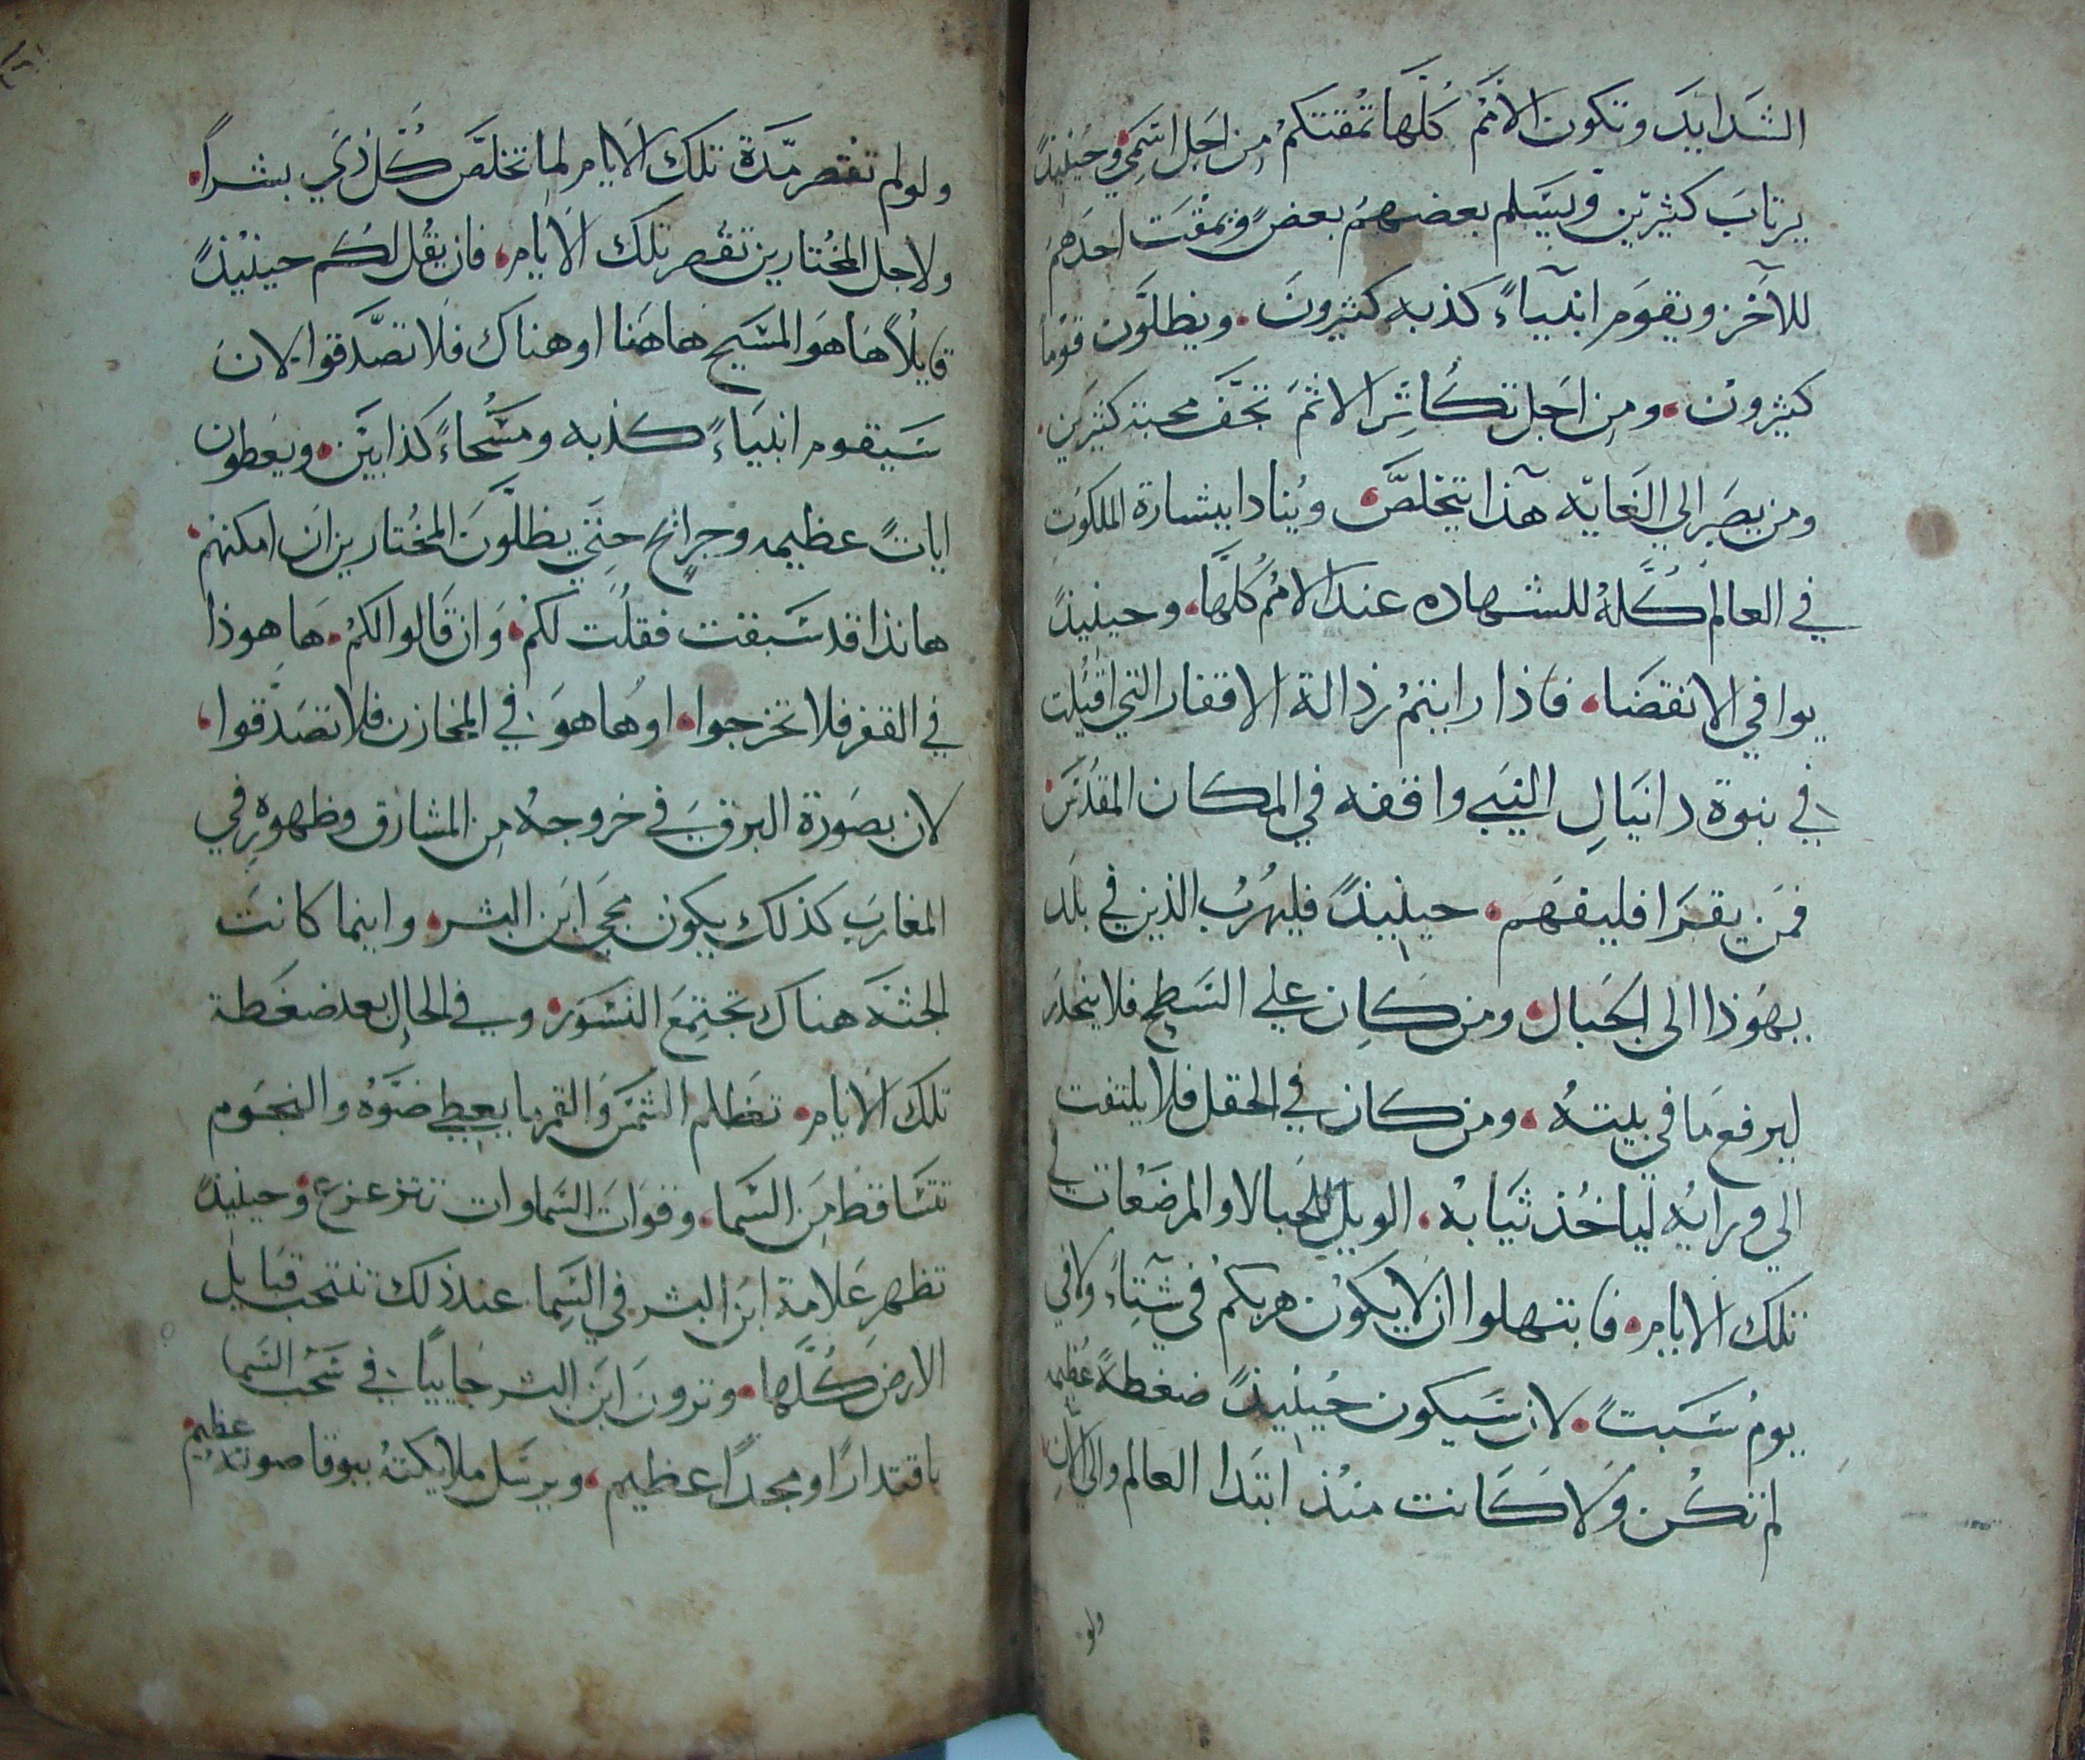 الشَدايدَ وتكون الأمَم كُلّهَا تمُقتكمُ مِن اجَل اسَمِي وحَينيذً
يرتابَ كثيريَن ويسَلم بعضهمُ بعضٍ ويمقتَ احدَهمَ
للآخَر ويقومَ انبَياءً كذبه كثيرونَ ويظلَون قوَماً
كثيرونَ ومِن اجَل تكاثِر الاثمَ تجَف محبة كثيرَين
ومن يصَبر الي الغَايه هَذا يتخلصَ ويُنادا ببشارة الملكوَت
في العالم كُلهُ للشهاده عند الاممُ كُلهَا وحينيذً
يوافي الانقضَا فاذا رايتمُ رذالة الاقفار التي اقيَلت
في نبوة دانيَالِ النبَي واقفه في المكان المقدَسَ
فمَن يقرَا فليفهَم حينيذً فليهرُبُ الذين في بلَد
يهوَذا الي الجَبال ومن كَاِن علي السَطح فلا ينحَدرَ
ليرفع مَا في بيتهُ ومن كان في الحَقل فلا يلتفت
الي ورايهُ لياخُذ ثيَابهُ الويل للحَبالا والمرضَعات في
تلك الايام فابتهلوا ان لا يكوُن هربكمُ في شتَاءً ولا في
يومُ سَبتً لان سَيكون حيُنيذً ضغطةً عَظيمه
لم تكُن ولا كَانت منُذ ابتَدا العالم والي الآنِ
ولو
ولو لم تقصر مَدَة تلك الايام لما تخلصَ كُل ذيَ بشراً
ولاجل المخُتارين تقُصر تلك الايَام فان يقُل لكُم حينيُذً
قايلاً هَا هوَ المسَيح هَاهنا او هناك فلا تصَدقوا لان
سَيقوم انبيَاءً كذبه ومسَُحاءً كذابيَن ويعَطون
اياتً عظيمه وجرايح حتيَ يظلوَن المخُتارين ان امكنهمُ
هانذا قد سَبقت فقلُت لكمُ وَان قَالوا لكمُ هَا هوذا
في القفر فلا تخرجوا او هَا هوَ في المخازن فلا تصَدقوا
لان بصَورة البرق في خروجهُ مِن المشارق وظهورِه في
المغاربَ كذلك يكون مجَي ابَن البشر واينما كانتَ
الجثثَه هناك تجَتمِعَ النسَوَر وفي الحاِل بعد ضغَطة
تلك الايام تغَظلم الشمسَ وَالقمر ما يعِطي ضوَهُ والنجَوم
تتسَاقط مِنَ السَما وقواتَ السَماوات تتزعزع وحينيذً
تظهرِ عَلامة ابَن البشر في السَما عند ذلك تنتحب قبَايل
الارضَ كُلهَا وترون ابَن البشر جَاييًا في سَحُب السَما
باقتدارًا ومجداً عظيم ويرسَل ملايكتهُ ببوقا صوتهُ عظيم